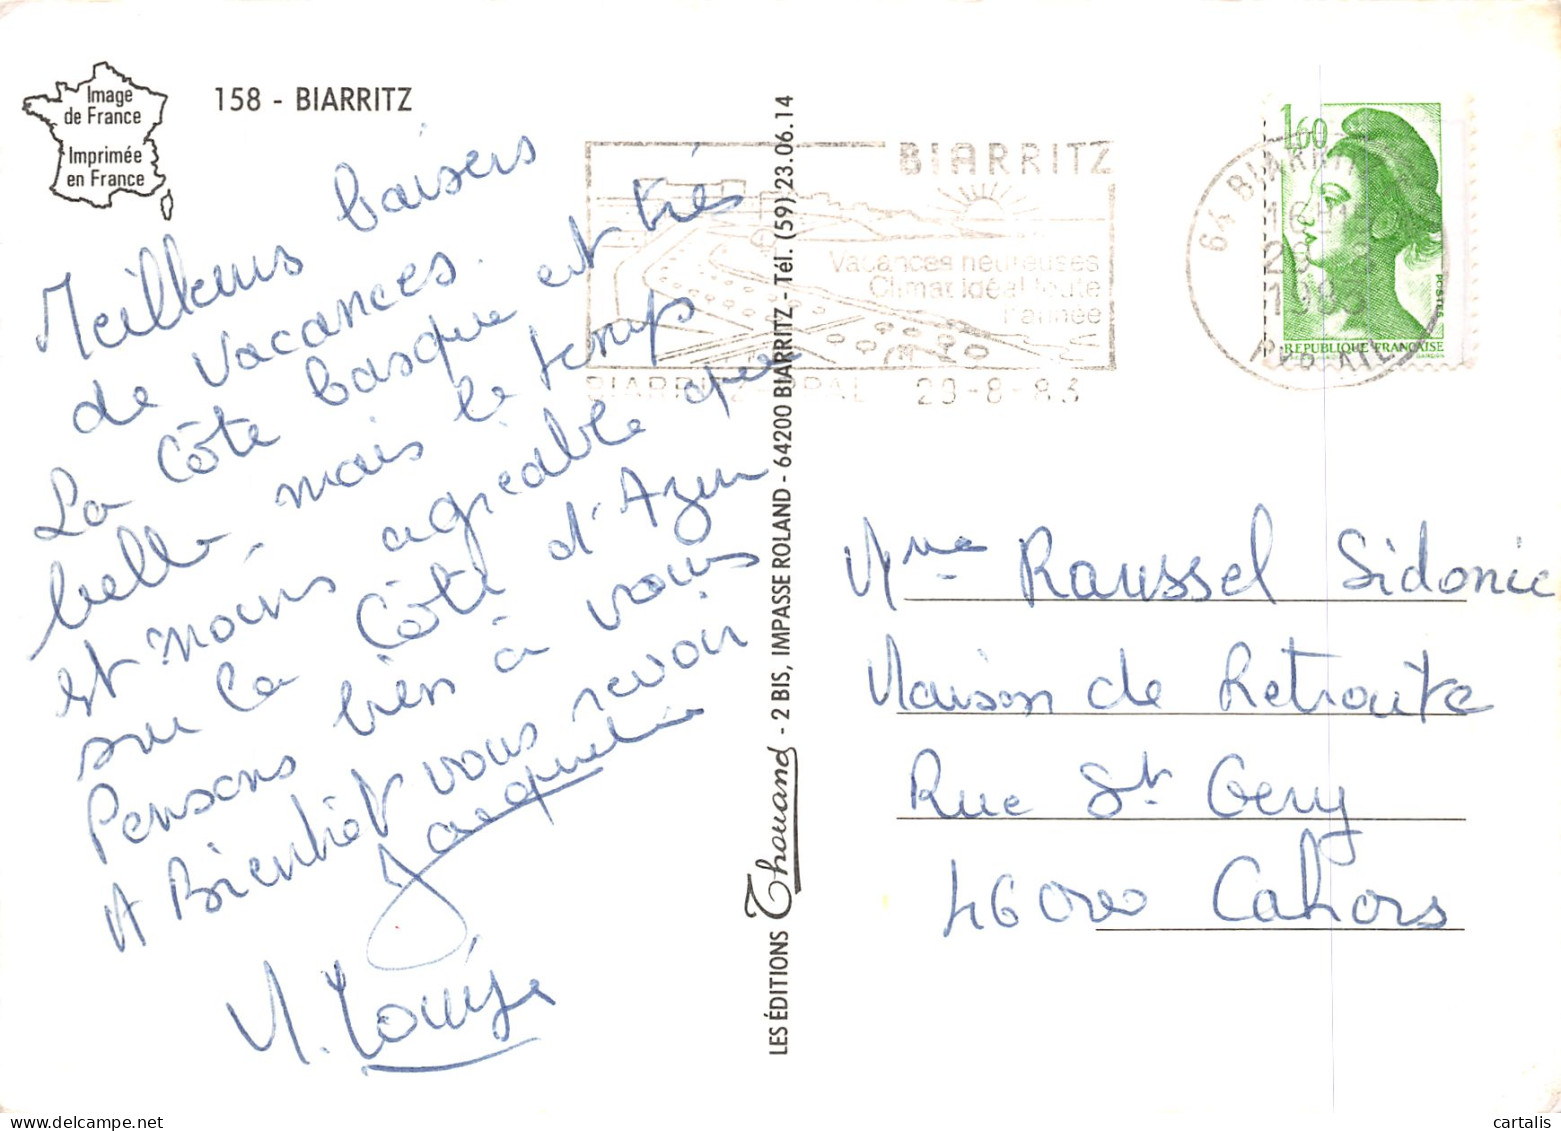 Image
de France
Imprimée
en France
158 - BIARRITZ
Meilleurs baisers
de vacances.
La Côte basque est très
belle, mais le temps
est moins agréable que
sur la Côte d'Azur
Pensons bien à vous
A Bientôt vous revoir
Jacqueline
M. Louise
LES ÉDITIONS Thouand - 2 BIS, IMPASSE ROLAND - 64200 BIARRITZ - Tél. (59) 23.06.14
BIARRITZ
Vacances heureuses
Climat idéal toute
l'année
BIARRITZ PPAL 29-8-83
64 BIARRITZ
1983
1,60
POSTES
REPUBLIQUE FRANÇAISE
Mme Raussel Sidonie
Maison de Retraite
Rue St Gery
46000 Cahors
cartalis